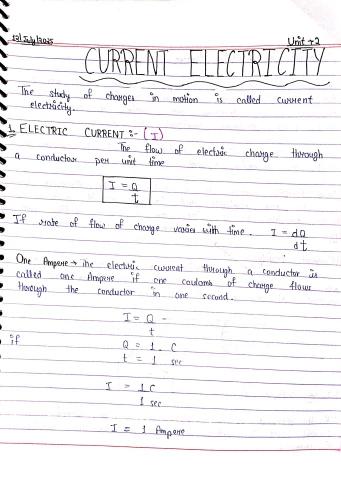 13/July/2025
Unit → 2
CURRENT ELECTRICITY
The study of charges in motion is called current
electricity.
1. ELECTRIC CURRENT :- (I)
The flow of electric charge through
a conductor per unit time
I = Q
t
If rate of flow of charge varies with time. I = dQ
dt
One Ampere → The electric current through a conductor is
called one Ampere if one coulomb of charge flows
through the conductor in one second.
I = Q
t
if
Q = 1 C
t = 1 sec
I = 1 C
1 sec
I = 1 Ampere